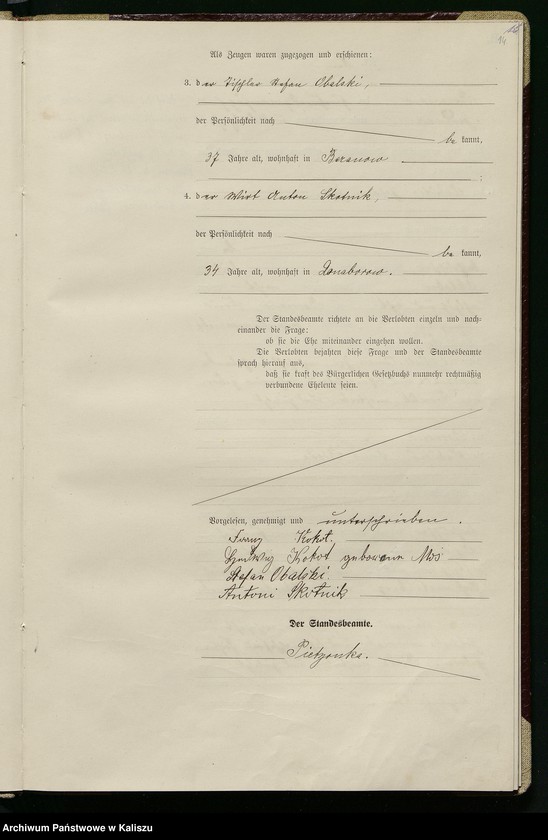 14
Als Zeugen waren zugezogen und erschienen:
3. der Tischler Stefan Obalski,
der Persönlichkeit nach
bekannt,
37 Jahre alt, wohnhaft in
4. der Wirt Anton Skotnik,
der Persönlichkeit nach
bekannt,
34 Jahre alt, wohnhaft in
Der Standesbeamte richtete an die Verlobten einzeln und nach-
einander die Frage:
ob sie die Ehe miteinander eingehen wollen.
Die Verlobten bejahten diese Frage und der Standesbeamte
sprach hierauf aus,
daß sie kraft des Bürgerlichen Gesetzbuchs nunmehr rechtmäßig
verbundene Eheleute seien.
Vorgelesen, genehmigt und unterschrieben.
Franz Kokot,
Hedwig Kokot geborene Moś
Stefan Obalski.
Antoni Skotnik
Der Standesbeamte.
Pietzonka.
Archiwum Państwowe w Kaliszu